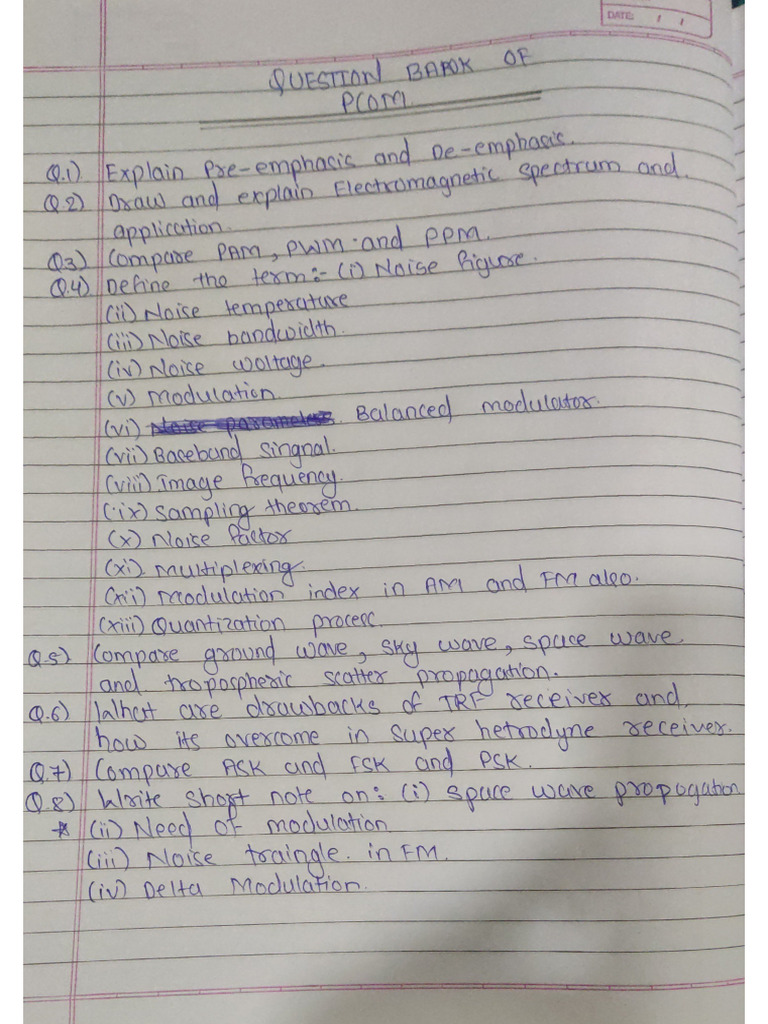 DATE: / /
QUESTION BANK OF
PCOM
Q.1) Explain Pre-emphasis and De-emphasis.
Q.2) Draw and explain Electromagnetic Spectrum and
application.
Q3) Compare PAM, PWM and PPM.
Q.4) Define the term:- (i) Noise figure.
(ii) Noise temperature
(iii) Noise bandwidth.
(iv) Noise woltage.
(v) Modulation.
(vi) Noise parameters. Balanced modulator.
(vii) Baseband singnal.
(viii) Image frequency.
(ix) Sampling theorem.
(x) Noise factor
(xi) Multiplexing.
(xii) Modulation index in AM and FM also.
(xiii) Quantization process.
Q.5) Compare ground wave, sky wave, space wave
and tropospheric scatter propagation.
Q.6) What are drawbacks of TRF receiver and
how its overcome in super hetrodyne receiver.
Q.7) Compare ASK and FSK and PSK.
Q.8) Write short note on: (i) space wave propogation
* (ii) Need of modulation
(iii) Noise traingle. in FM.
(iv) Delta Modulation.